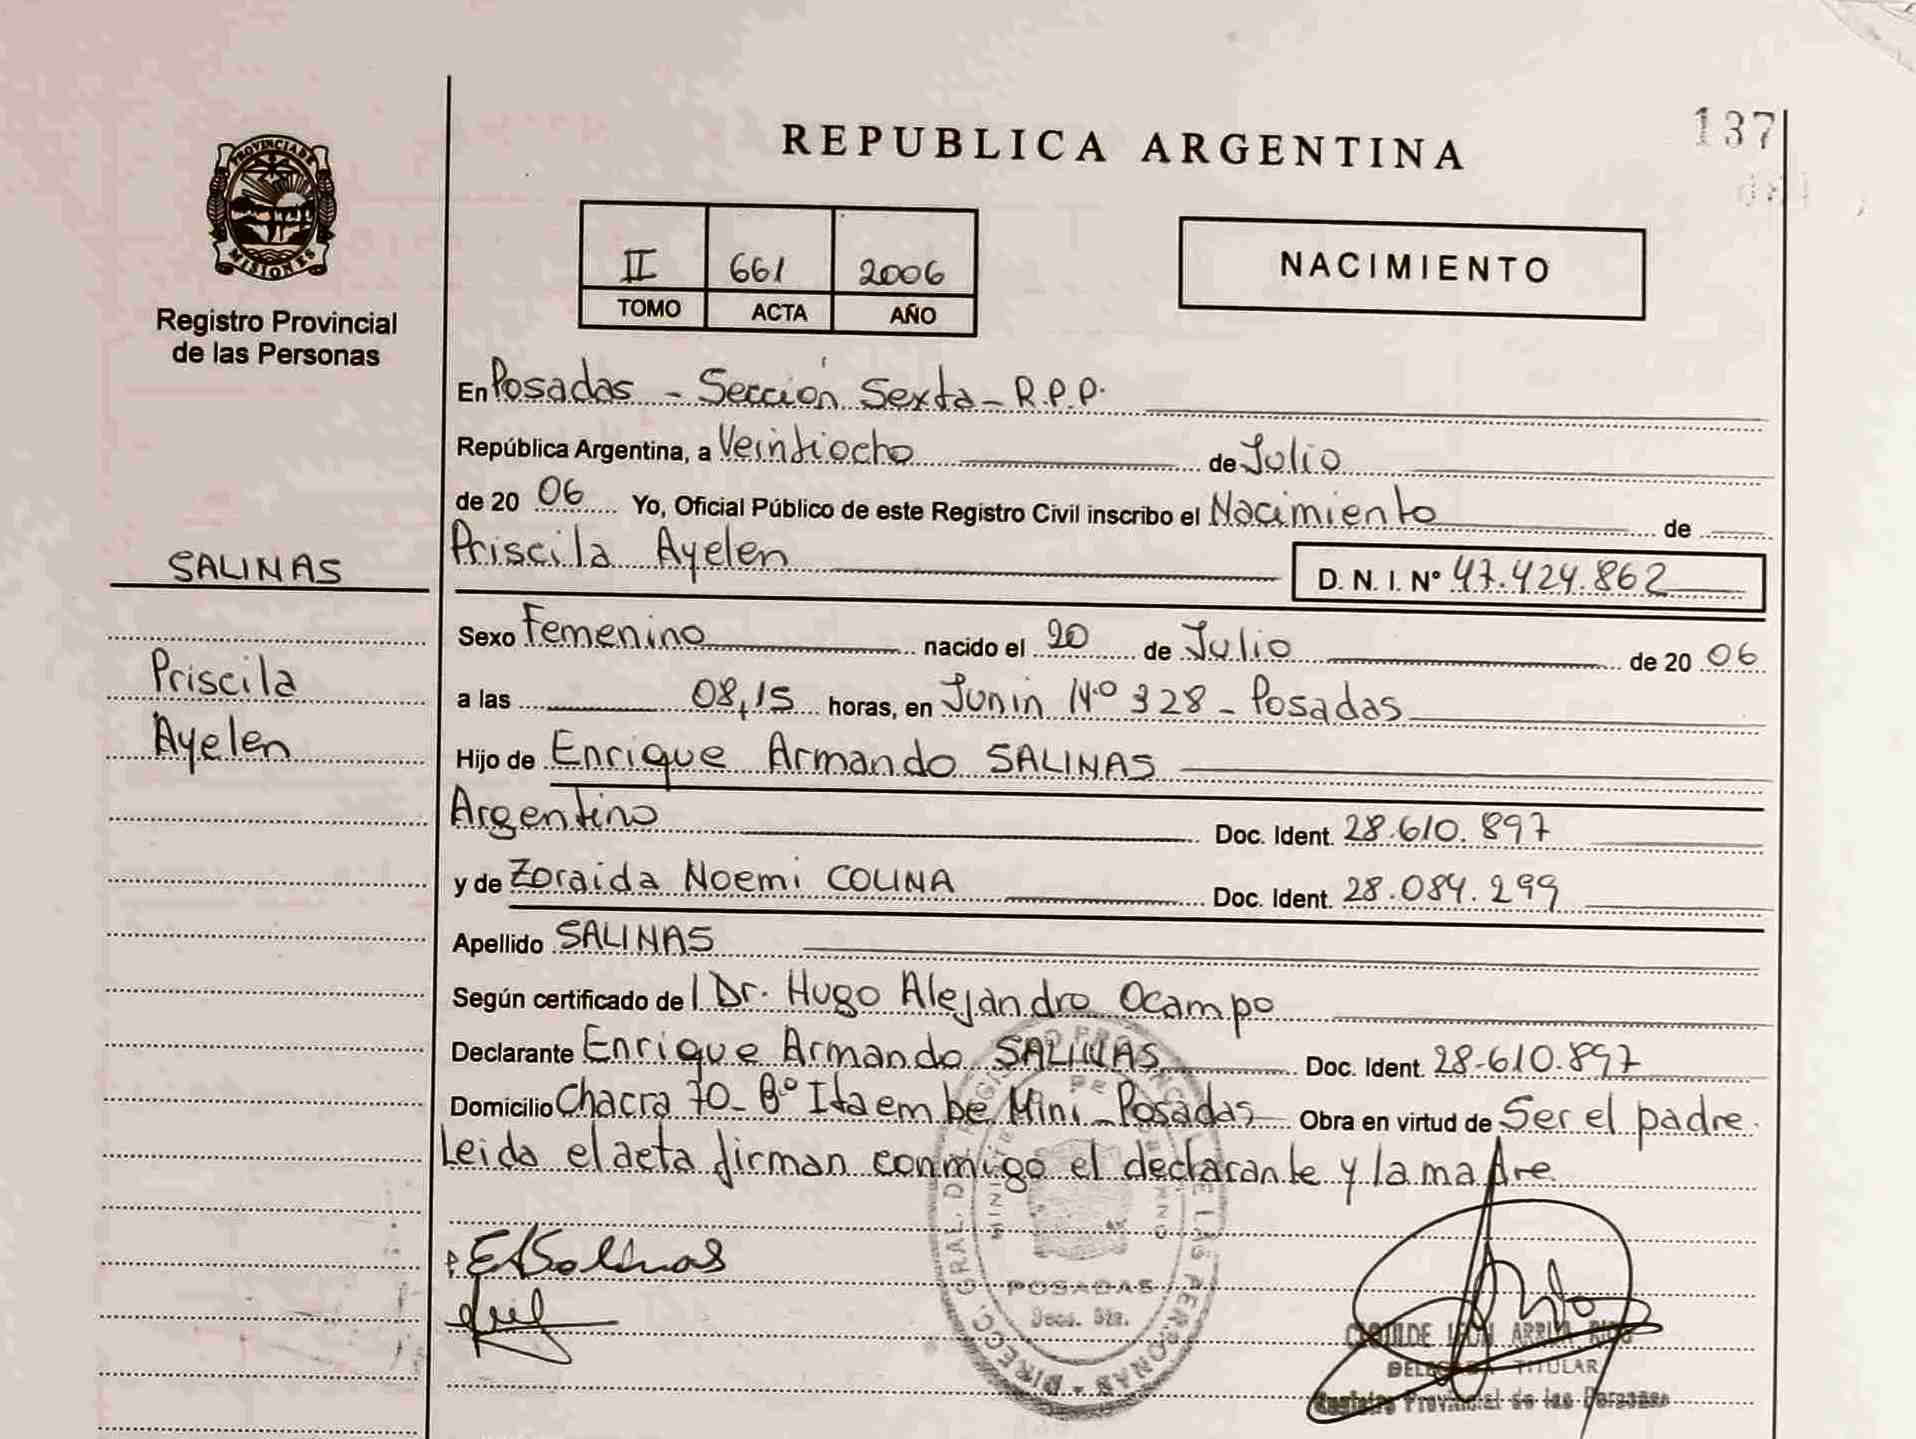 137
REPUBLICA ARGENTINA
PROVINCIA DE
MISIONES
Registro Provincial
de las Personas
II 661 2006
TOMO ACTA AÑO
NACIMIENTO
En Posadas - Sección Sexta - R.P.P.
República Argentina, a Veintiocho de Julio
de 20 06 Yo, Oficial Público de este Registro Civil inscribo el Nacimiento de
Priscila Ayelen D. N. I. Nº 47.424.862
SALINAS
Priscila
Ayelen
Sexo Femenino nacido el 20 de Julio de 20 06
a las 08,15 horas, en Junin Nº 328 - Posadas
Hijo de Enrique Armando SALINAS
Argentino Doc. Ident. 28.610.897
y de Zoraida Noemi COLINA Doc. Ident. 28.084.299
Apellido SALINAS
Según certificado de l Dr. Hugo Alejandro Ocampo
Declarante Enrique Armando SALINAS Doc. Ident. 28-610.897
Domicilio Chacra 70 - Bº Itaembe Mini - Posadas Obra en virtud de Ser el padre.
Leida el acta firman conmigo el declarante y la madre.
EASalinas
POSADAS
Secc. 6ta.
DELEGADA TITULAR
Registro Provincial de las Personas